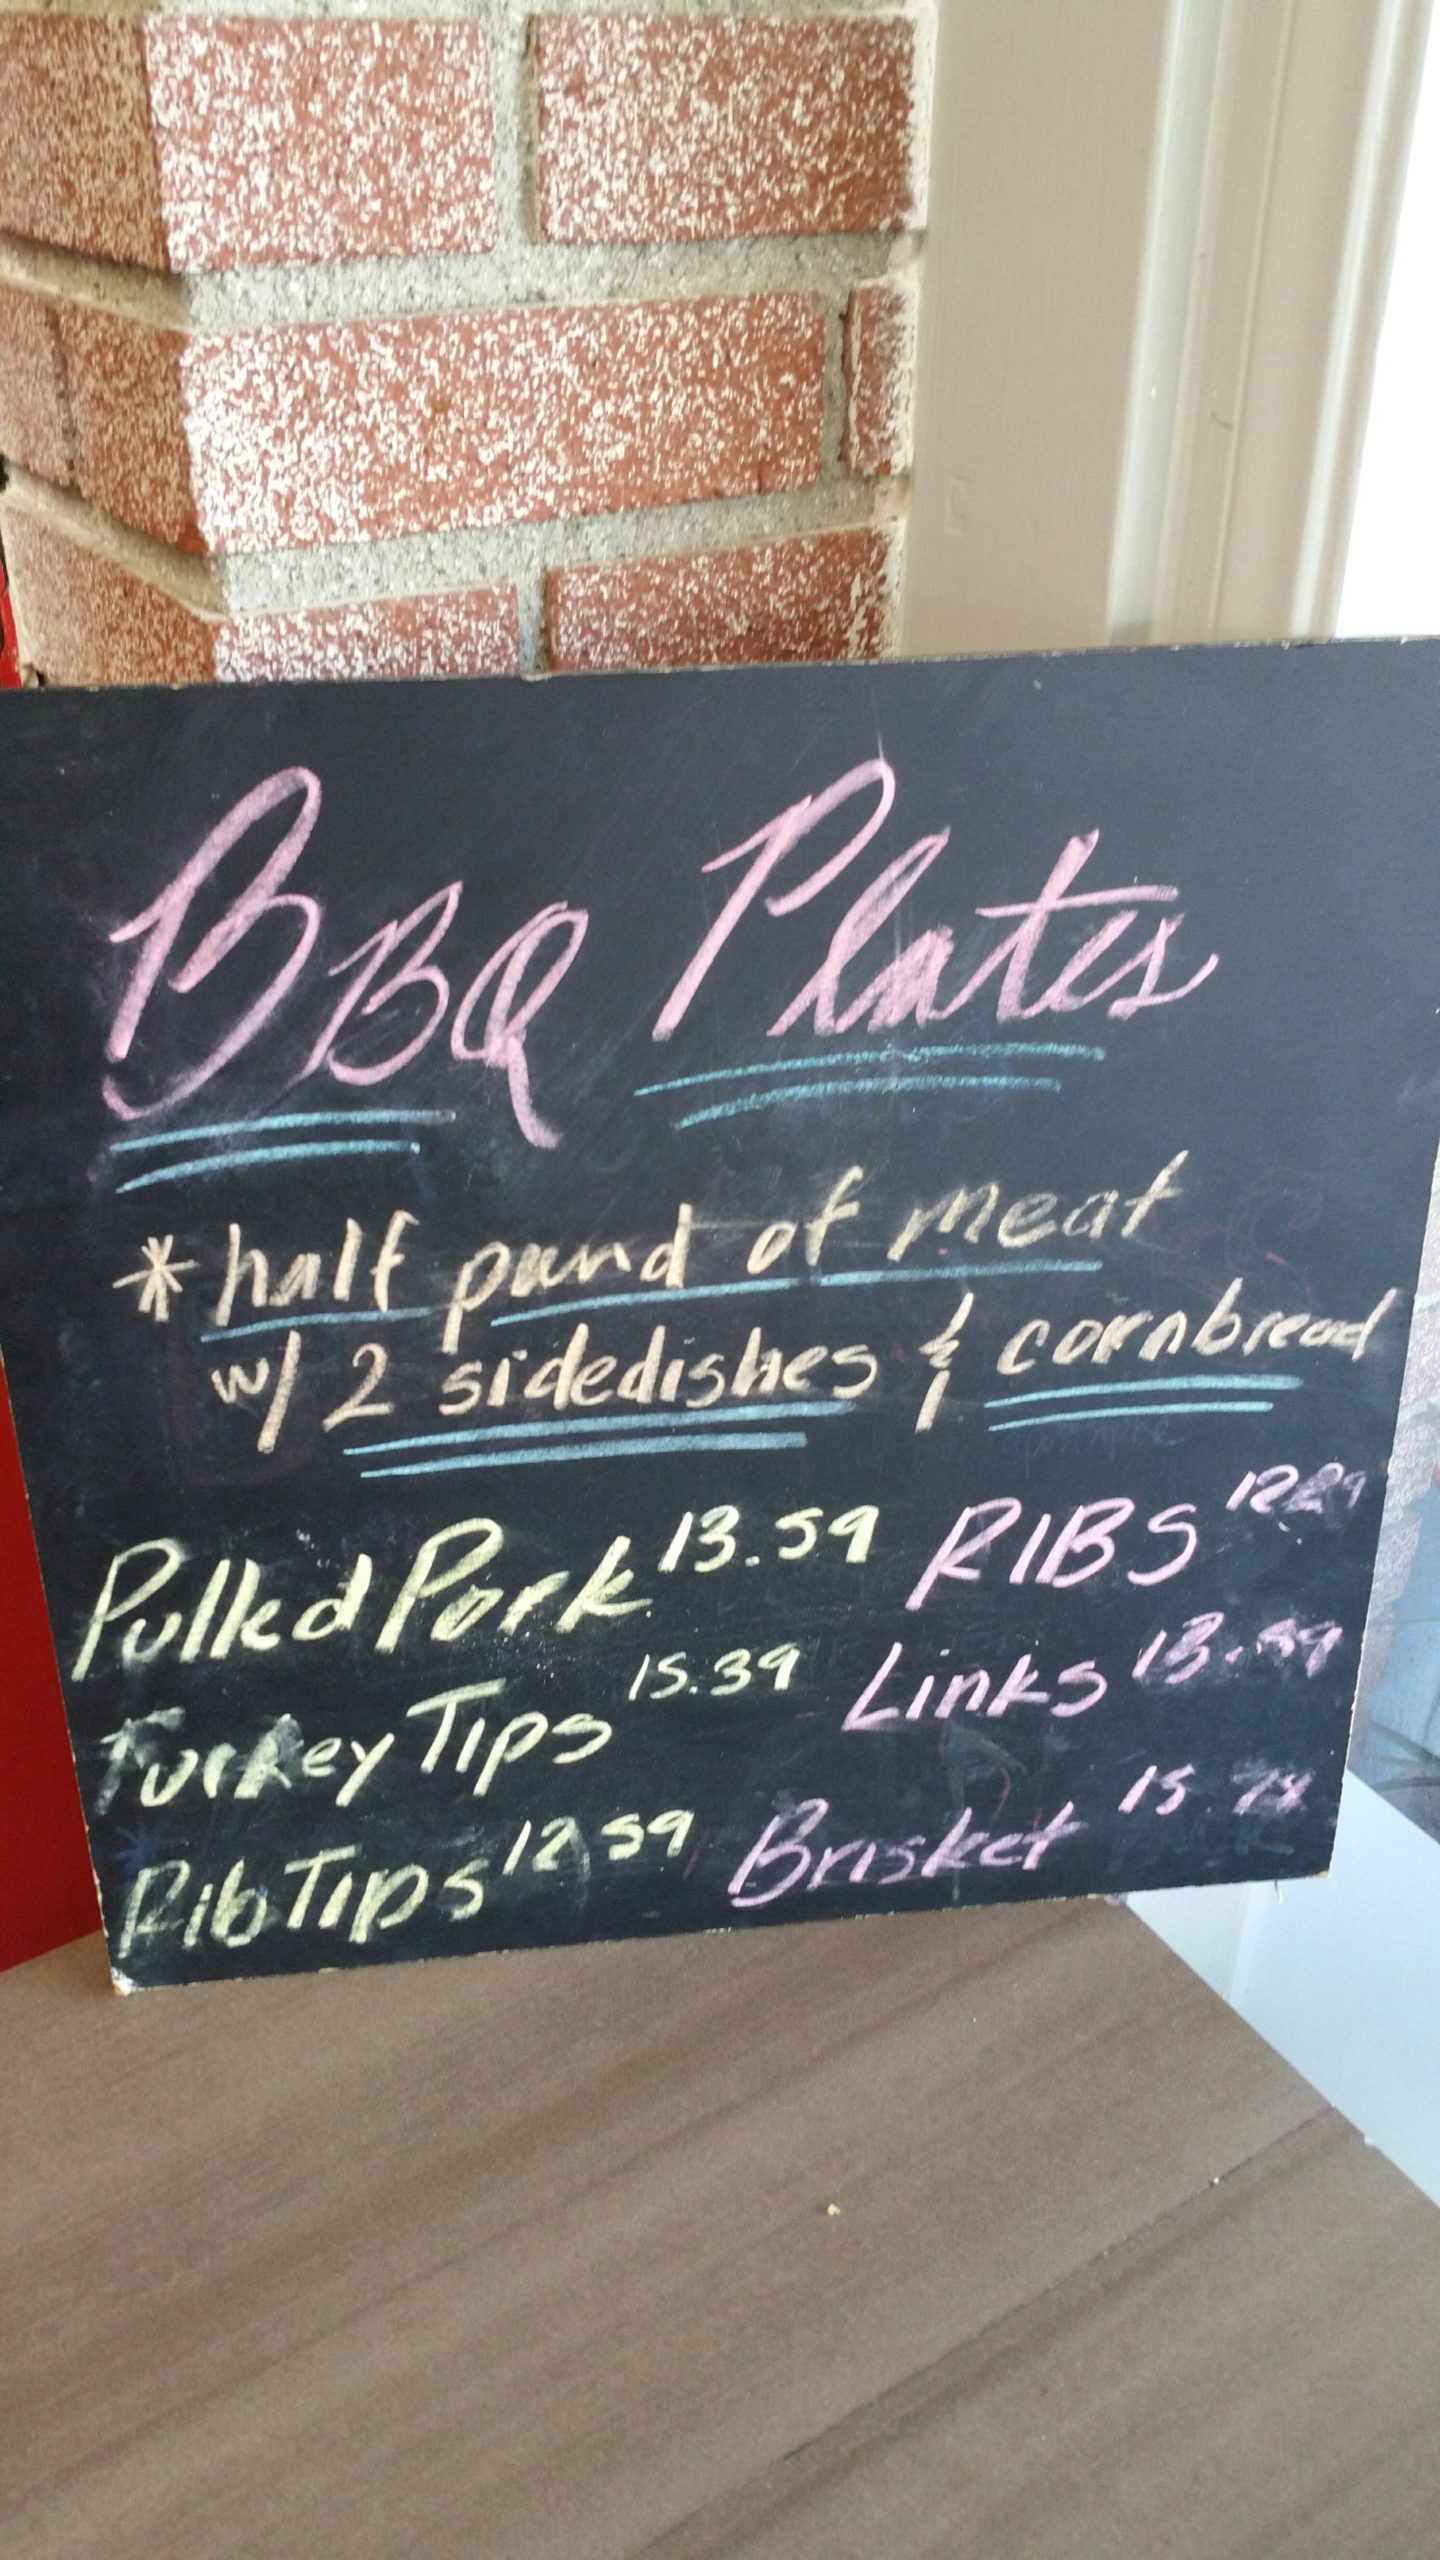 BBQ Plates
*half pound of meat
w/ 2 sidedishes & cornbread
Pulled Pork 13.59
Turkey Tips 15.39
Rib Tips 12 59
RIBS
Links 13.59
Brisket 15